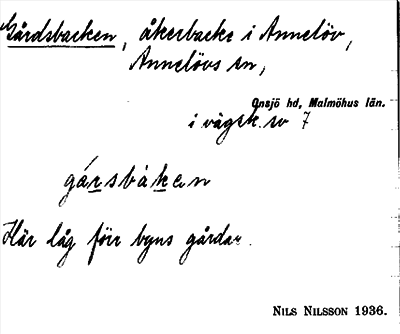 Gårdsbacken, åkerbacke i Annelöv,
Annelövs sn,
Onsjö hd, Malmöhus län.
i vägsk. sv 7
gårsbàken
Här låg förr byns gårdar.
NILS NILSSON 1936.